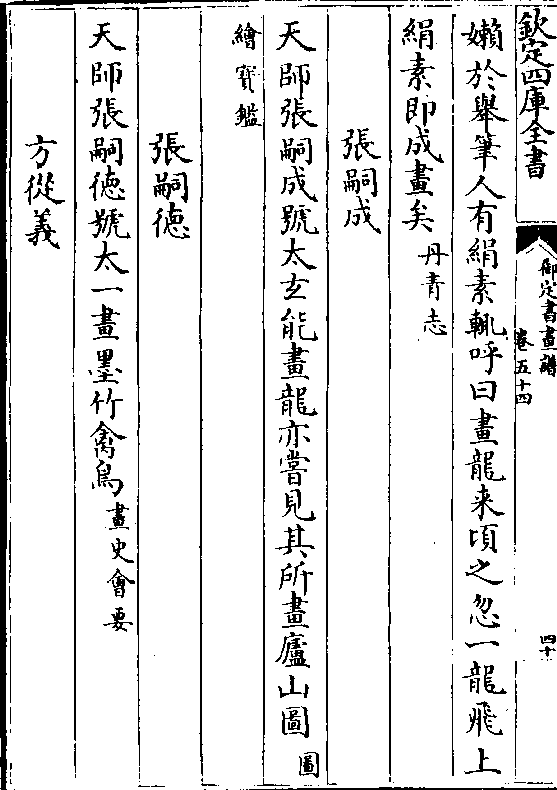 欽定四庫全書
御定書畫譜
卷五十四
嬾於舉筆人有絹素輒呼曰畫龍来頃之忽一龍飛上
絹素即成畫矣丹青志
張嗣成
天師張嗣成號太玄能畫龍亦嘗見其所畫廬山圖圖
繪寳鑑
張嗣德
天師張嗣德號太一畫墨竹禽鳥畫史會要
方從義